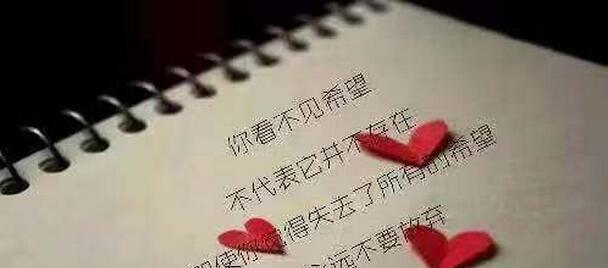 你看不见希望
不代表它并不存在
即使你觉得失去了所有的希望
永远不要放弃